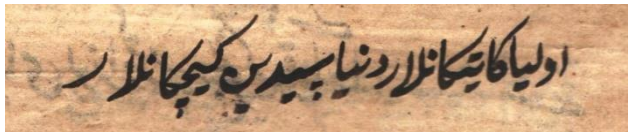 اولیاکا یتکانلار دنیا سیدین کیچکانلار